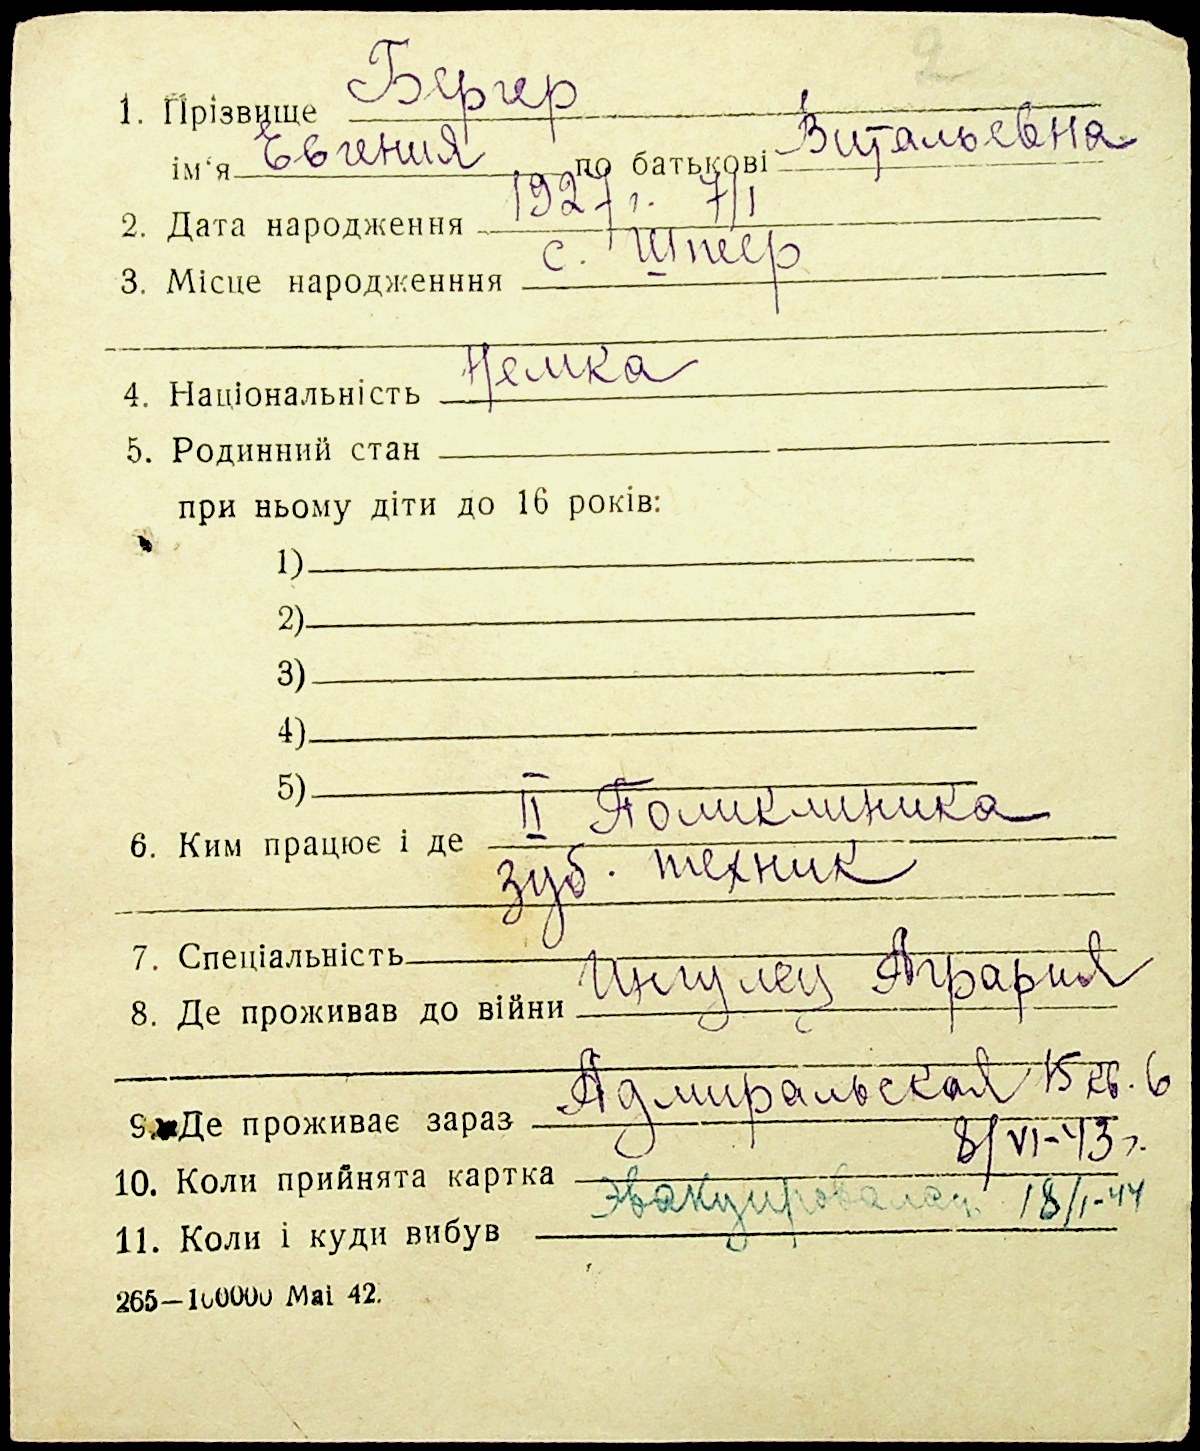 2
1. Прізвище Бергер
ім'я Евгения по батькові Витальевна
2. Дата народження 1927 г. 7/I
3. Місце народженння с. Шпеер
4. Національність Немка
5. Родинний стан
при ньому діти до 16 років:
1)
2)
3)
4)
5)
6. Ким працює і де II Поликлиника
зуб. техник
7. Спеціальність
8. Де проживав до війни Ингулец Агрария
9. Де проживає зараз Адмиральская 15 кв. 6
10. Коли прийнята картка 8/VI-43 г.
11. Коли і куди вибув Эвакуировалась 18/I-44
265—100000 Mai 42.